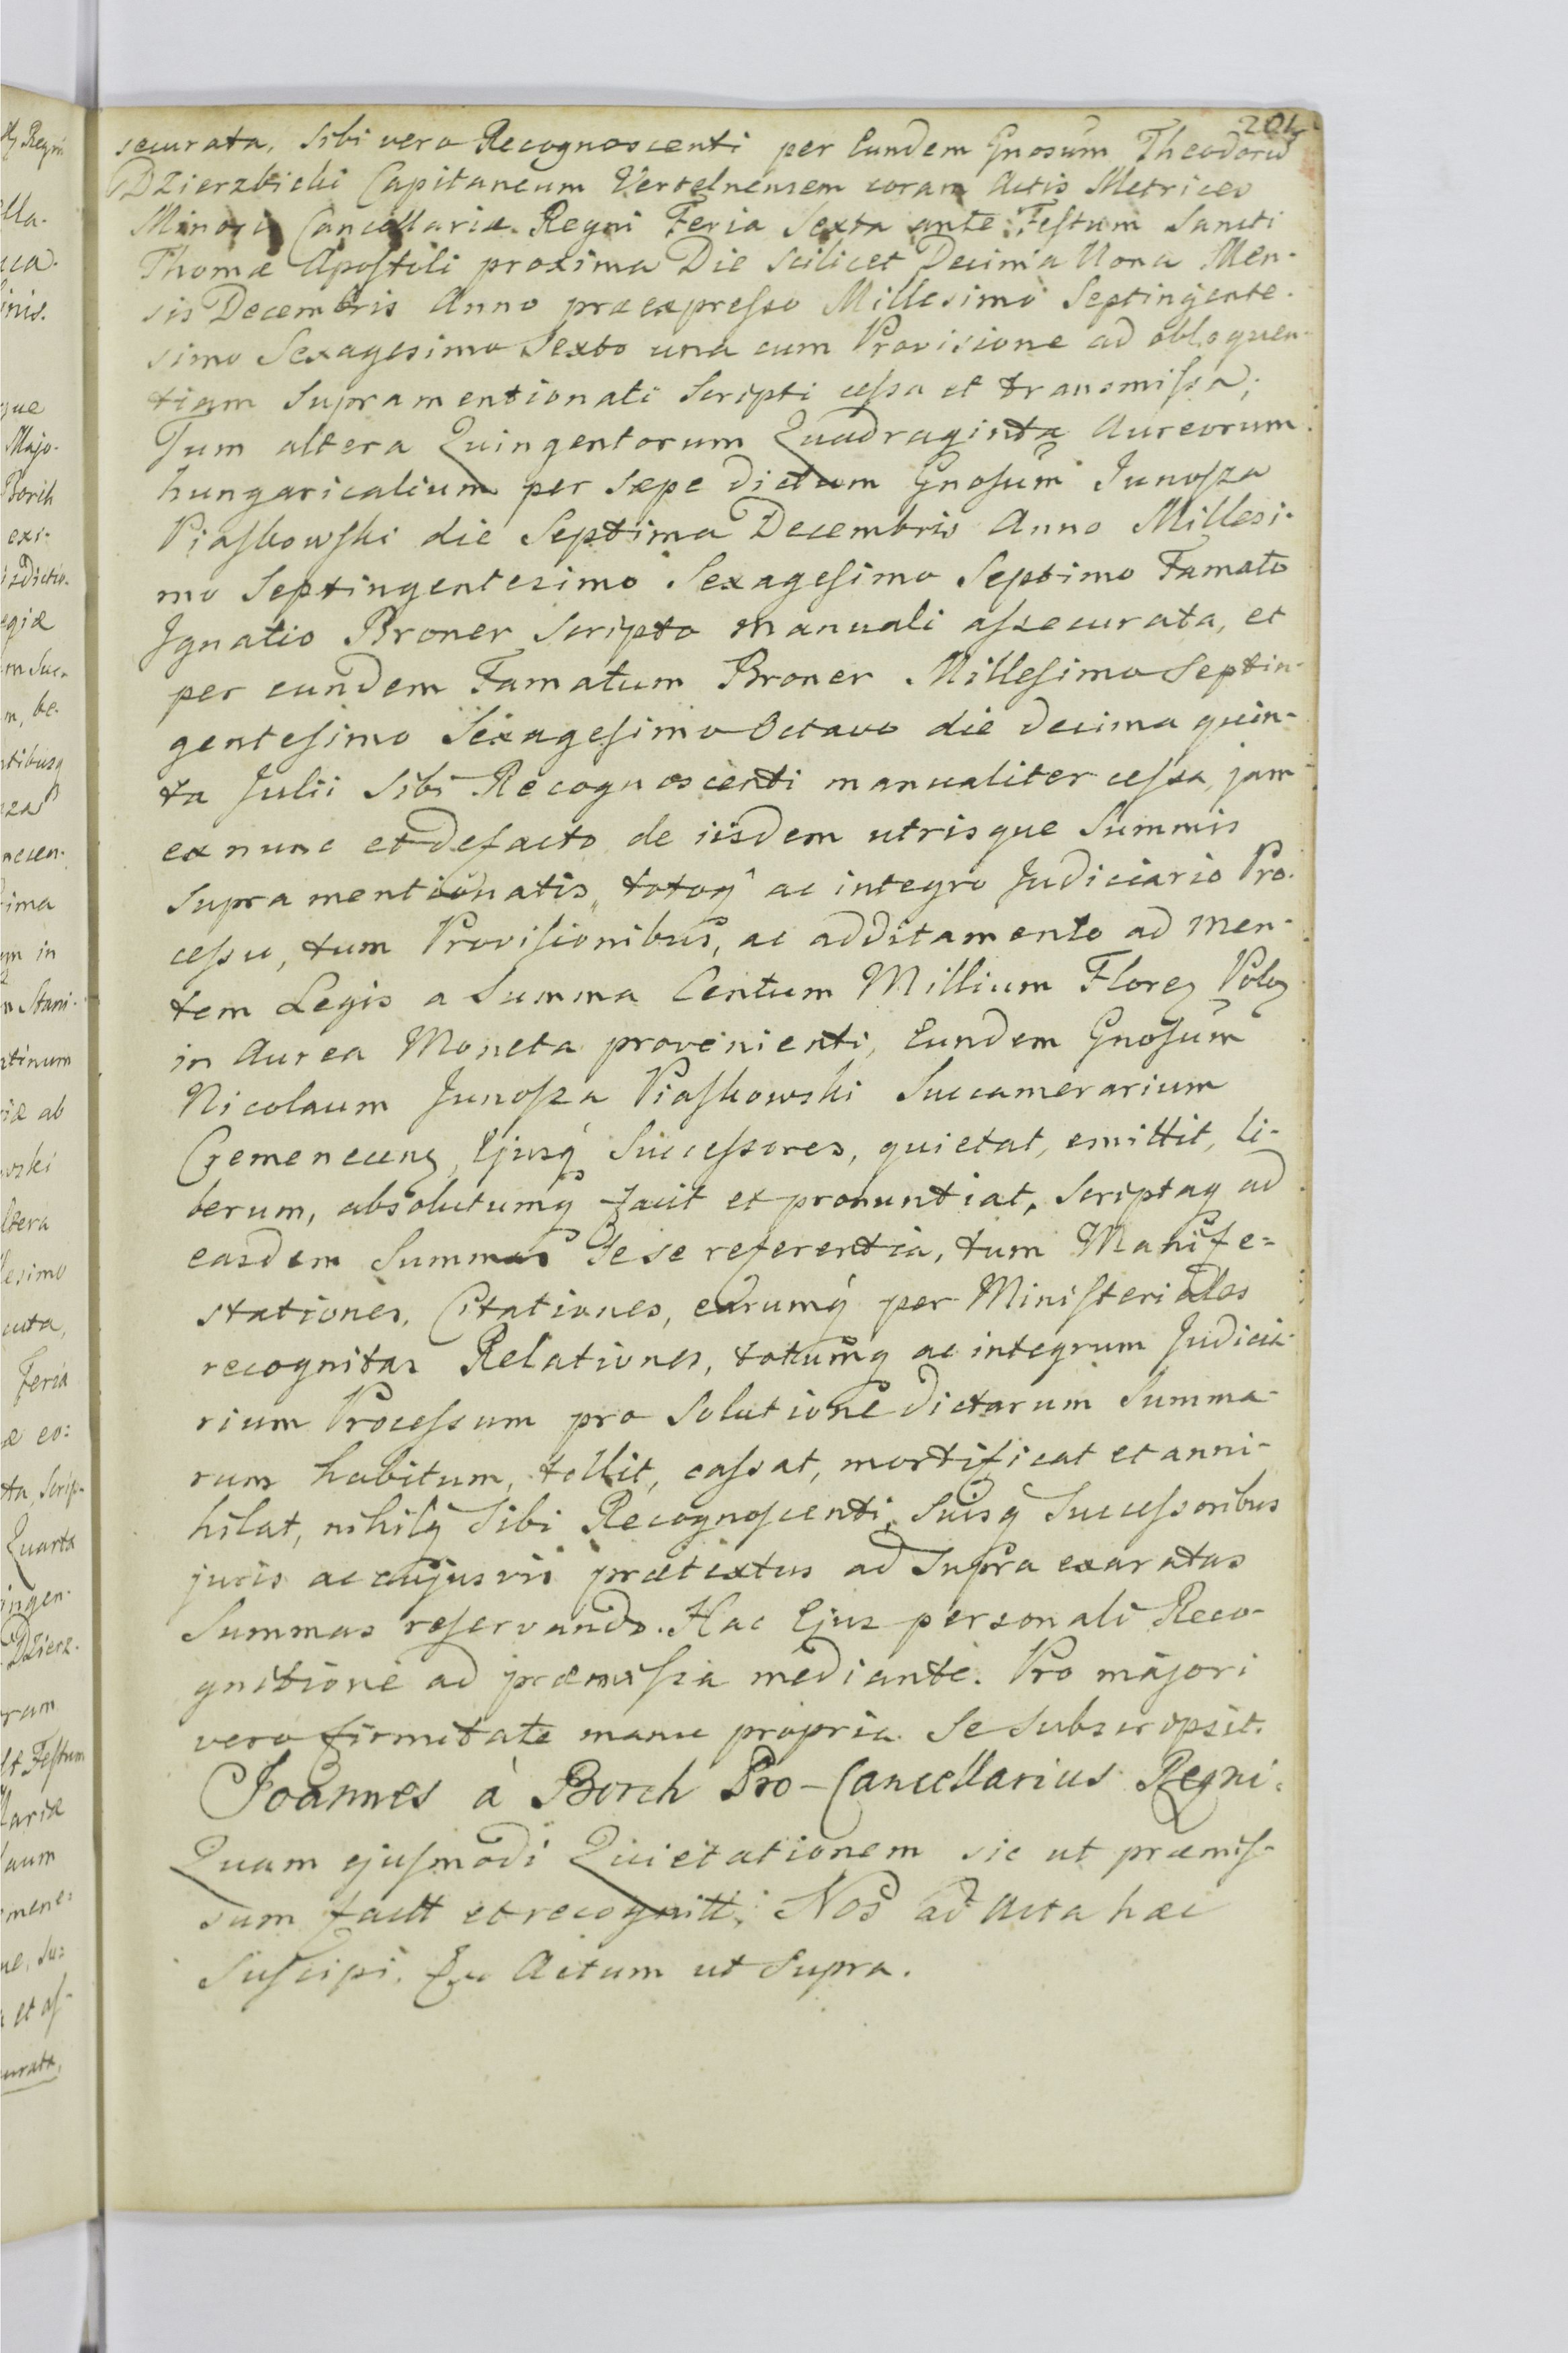 201
securata, sibi vero Recognoscenti per Eundem Gnosum Theodoru
Dzierzbicki Capitaneum Vertelnensem coram Actis Metrices
Minoris Cancellariæ Regni Feria Sexta ante Festum Sancti
Thomæ Apostoli proxima Die scilicet Decima Nona Men-
sis Decembris Anno præexpresso Millesimo Septingente-
simo Sexagesimo Sexto una cum Provisione ad obloquen-
tiam supramentionati Scripti cessa et transmissa;
Tum altera Quingentorum Quadraginta Aureorum
hungaricalium per sæpe dictum Gnosum Junosza
Piaskowski die Septima Decembris Anno Millesi-
mo Septingentesimo Sexagesimo Septimo Famato
Ignatio Broner scripto manuali assecurata, et
per eundem Famatum Broner Millesimo Septin-
gentesimo Sexagesimo Octavo die decima quin-
ta Julii sibi Recognoscenti manualiter cessa, jam
ex nunc et defacto de iisdem utrisque Summis
supra mentionatis, totoq ac integro Judiciario Pro-
cessu, tum Provisionibus, ac additamento ad men-
tem Legis a Summa Centum Millium Floren Polon
in Aurea Moneta provenienti, Eundem Gnosum
Nicolaum Junosza Piaskowski Succamerarium
Cremenecens, Ejusq Successores, quietat, emittit, li-
berum, absolutumq facit et pronuntiat, scriptaq ad
easdem Summas sese referentia, tum Manife-
stationes, Citationes, earumq per Ministeriales
recognitas Relationes, totumq ac integrum Judicia-
rium Processum pro Solutione dictarum Summa-
rum habitum, tollit, cassat, mortificat et anni-
hilat, nihilq sibi Recognoscenti, suisq Successoribus
juris ac cujusvis prætextus ad supra exaratas
Summas reservando. Hac Ejus personali Reco-
gnitione ad præmissa mediante. Pro majori
vero firmitate manu propria se subscripsit.
Joannes à Borch Pro-Cancellarius Regni.
Quam ejusmodi Quietationem sic ut præmis-
sum factt et recognitt. Nos ad Acta hæc
suscipi. Actum ut supra.